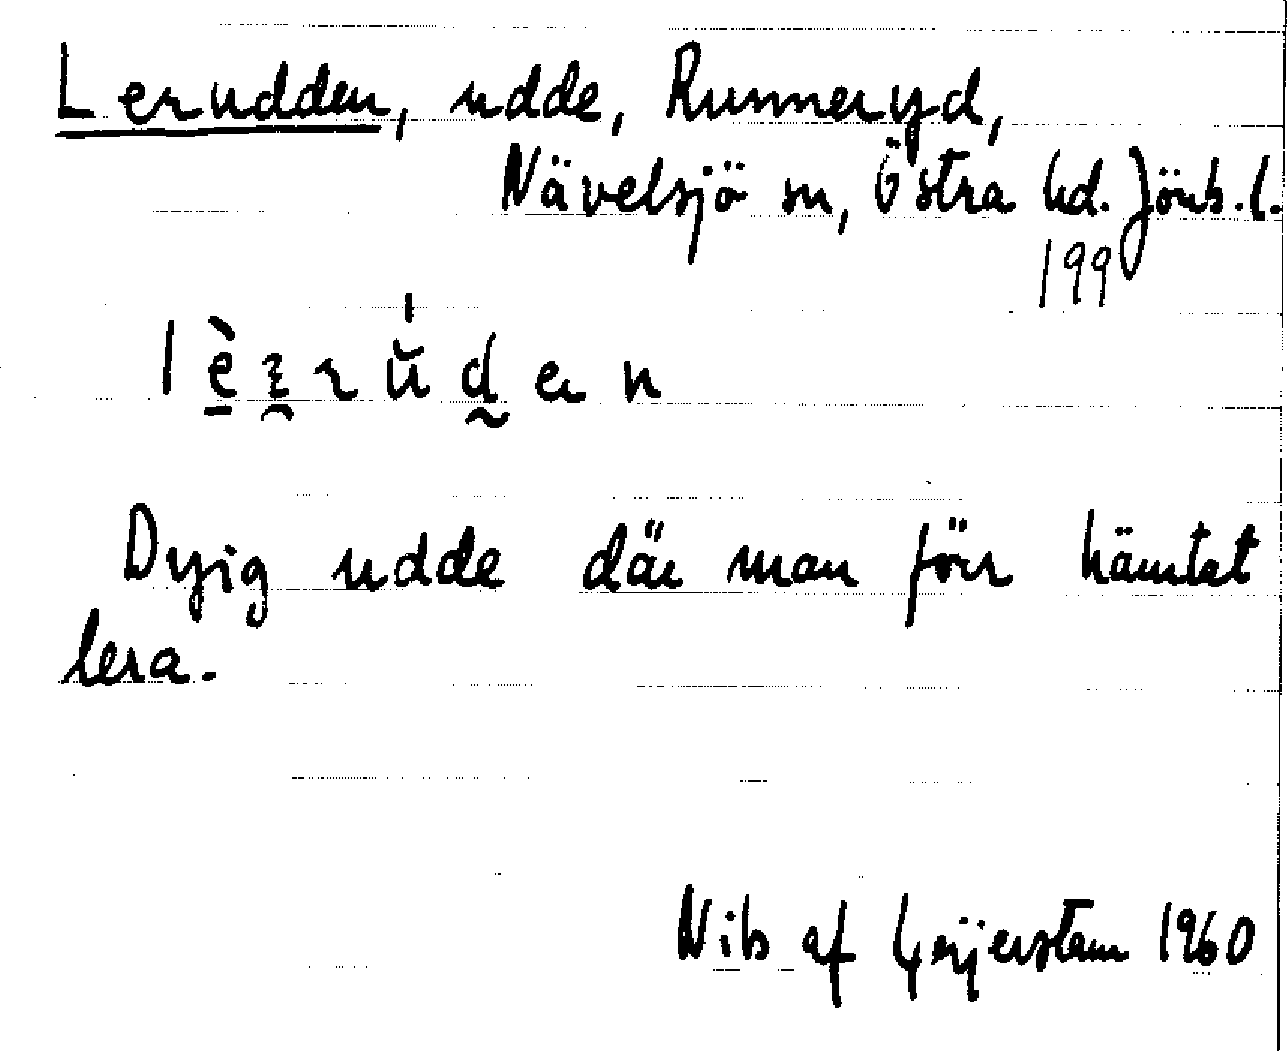 Lerudden, udde, Runneryd,
Nävelsjö sn, Östra hd. Jönk.l.
199
Dyig udde där man förr hämtat
lera.
Nils af Geijerstam 1960